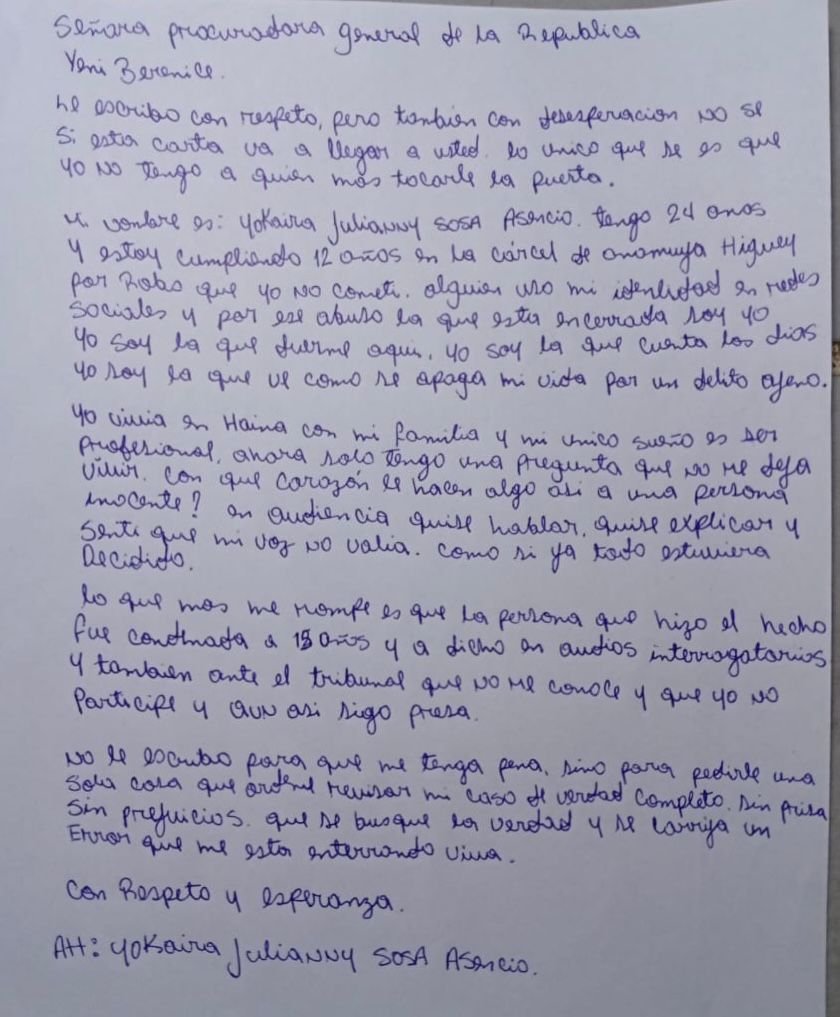 Señora procuradora general de la Republica
Yeni Berenice.
Le escribo con respeto, pero tambien con desesperacion no se
si esta carta va a llegar a usted. lo unico que se es que
yo no tengo a quien mas tocarle la puerta.
Mi nombre es: Yokaira Julianny Sosa Asencio. tengo 24 años
y estoy cumpliendo 12 años en la cárcel de anamuya Higuey
por Robo que yo no cometi. alguien uso mi identidad en redes
sociales y por ese abuso la que esta encerrada soy yo
yo soy la que duerme aqui, yo soy la que cuenta los dias
yo soy la que ve como se apaga mi vida por un delito ajeno.
Yo vivia en Haina con mi familia y mi unico sueño es ser
profesional, ahora solo tengo una pregunta que no me deja
vivir. con que corazón le hacen algo asi a una persona
inocente? en audiencia quise hablar, quise explicar y
senti que mi voz no valia. como si ya todo estuviera
Decidido.
lo que mas me rompe es que la persona que hizo el hecho
fue condenada a 15 años y a dicho en audios interrogatorios
y tambien ante el tribunal que no me conoce y que yo no
participe y aun asi sigo presa.
No le escribo para que me tenga pena, sino para pedirle una
sola cosa que ordene revisar mi caso de verdad completo. sin prisa
sin prejuicios. que se busque la verdad y se corrija un
Error que me esta enterrando viva.
Con Respeto y esperanza.
Att: Yokaira Julianny Sosa Asencio.